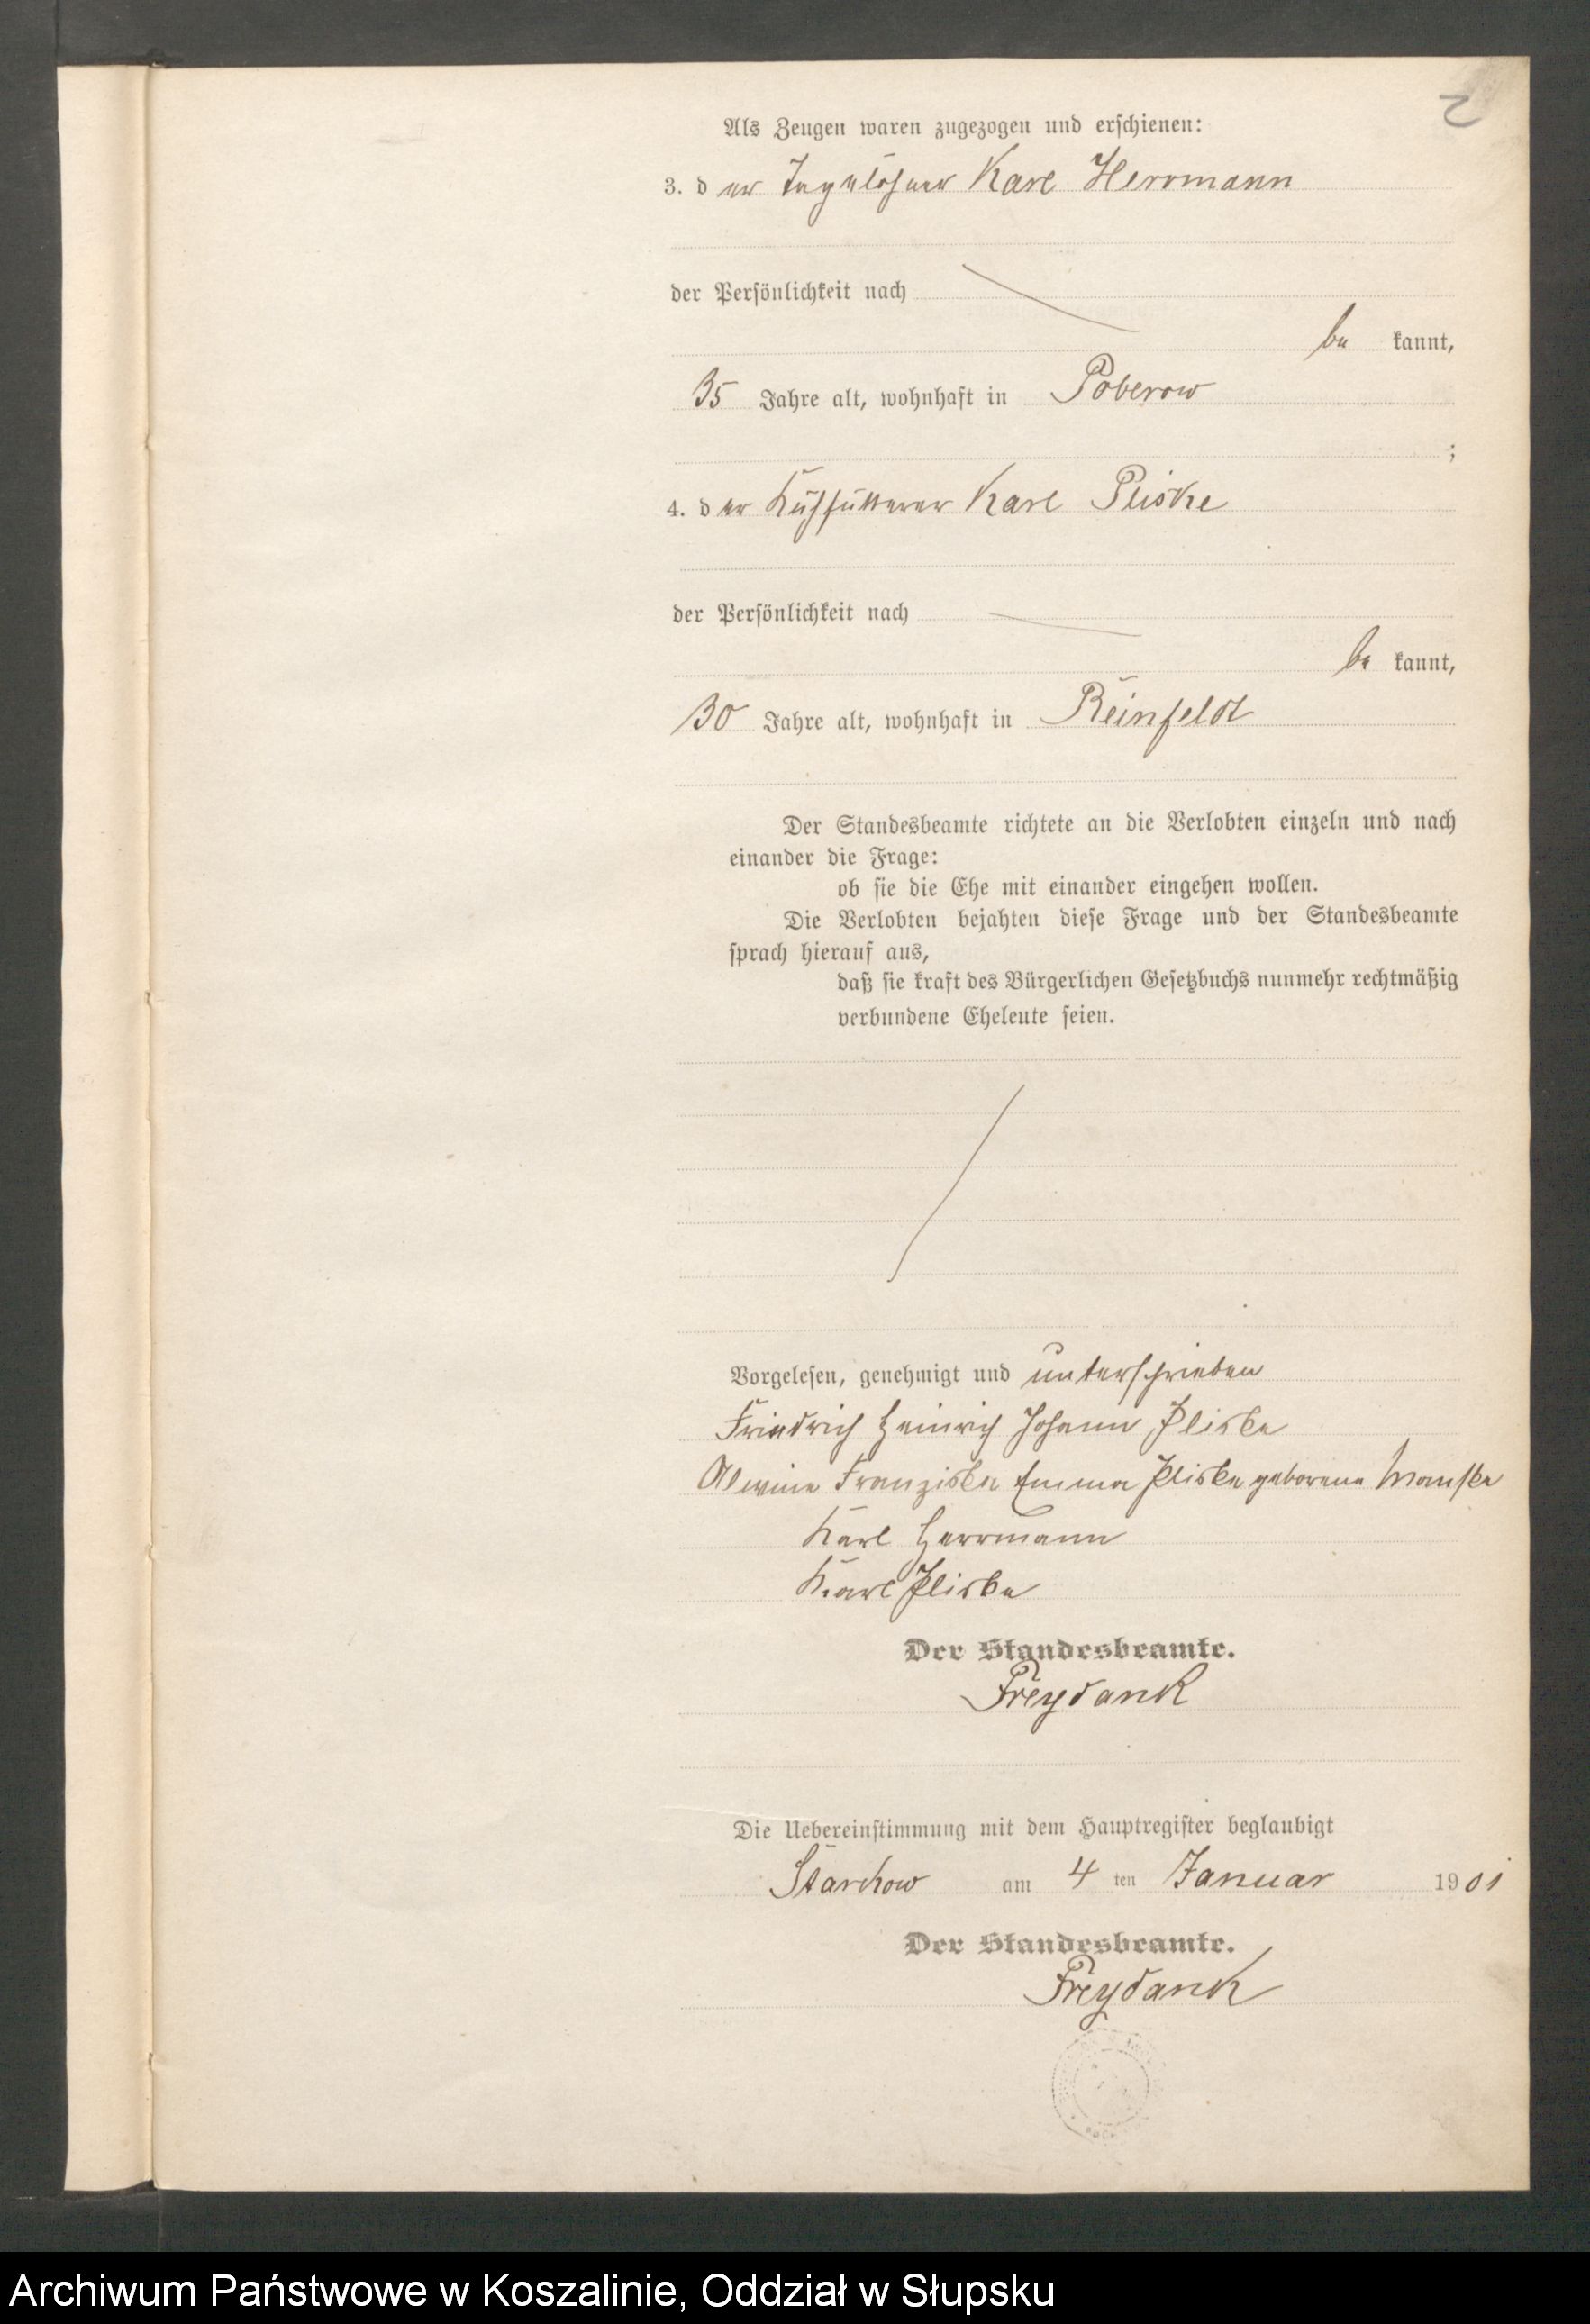 2
Als Zeugen waren zugezogen und erschienen:
3. der Tagelöhner Karl Herrmann
der Persönlichkeit nach
be kannt,
35 Jahre alt, wohnhaft in Poberow
;
4. der Kuhfütterer Karl Pliske
der Persönlichkeit nach
be kannt,
30 Jahre alt, wohnhaft in Reinfeld
Der Standesbeamte richtete an die Verlobten einzeln und nach
einander die Frage:
ob sie die Ehe mit einander eingehen wollen.
Die Verlobten bejahten diese Frage und der Standesbeamte
sprach hierauf aus,
daß sie kraft des Bürgerlichen Gesetzbuchs nunmehr rechtmäßig
verbundene Eheleute seien.
Vorgelesen, genehmigt und unterschrieben
Friedrich Heinrich Johann Pliske
Alwine Franziska Emma Pliske geborene Manske
Karl Herrmann
Karl Pliske
Der Standesbeamte.
Freydank
Die Uebereinstimmung mit dem Hauptregister beglaubigt
Starkow am 4 ten Januar 1901
Der Standesbeamte.
Freydank
Archiwum Państwowe w Koszalinie, Oddział w Słupsku